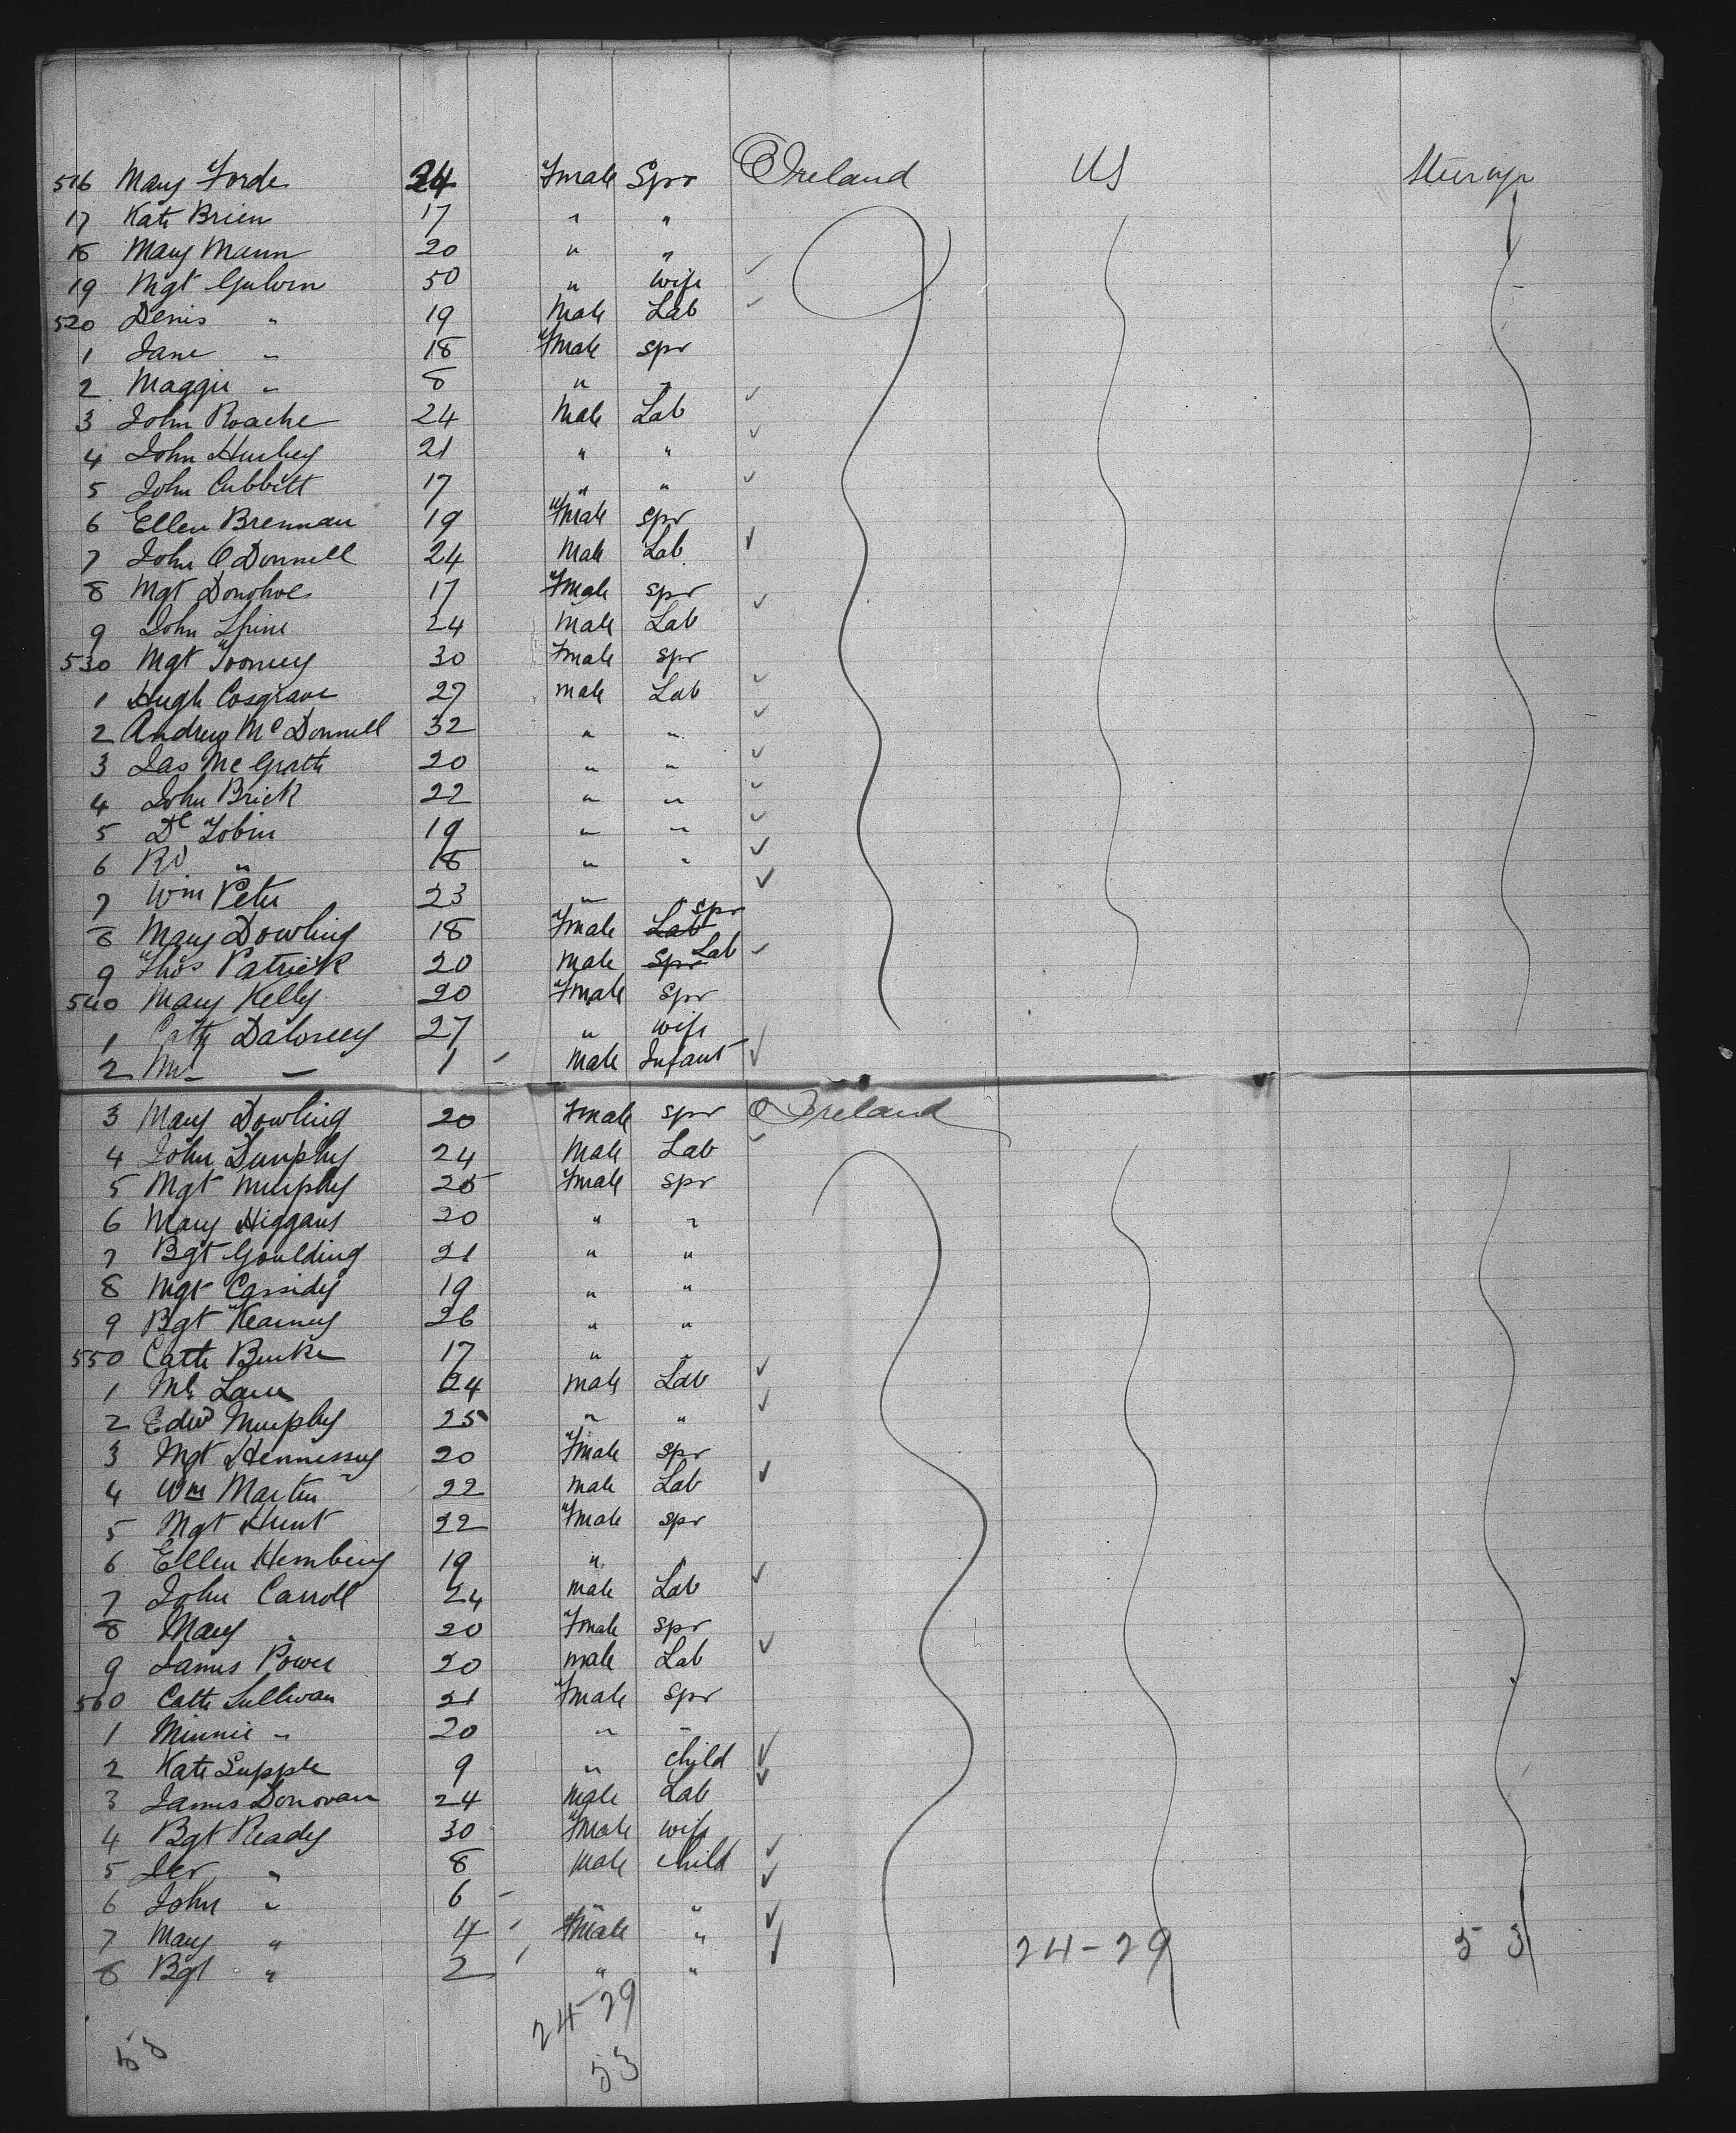 516 Mary Forde 24 Fmale Spr Ireland US Steerage
17 Kate Brien 17 " "
18 Mary Mann 20 " "
19 Mgt 50 " wife
520 Denis " 19 Male Lab
1 Jane " 18 Fmale spr
2 Maggie " 8 " "
3 John Roache 24 Male Lab
4 John Hurley 21 " "
5 John Cubbitt 17 " "
6 Ellen Brennan 19 Fmale spr
7 John O Donnell 24 Male Lab
8 Mgt Donohoe 17 Fmale spr
9 John 24 Male Lab
530 Mgt Toomey 30 Fmale spr
1 Hugh Cosgrave 27 male Lab
2 Andrew McDonnell 32 " "
3 Jas McGrath 20 " "
4 John Brick 22 " "
5 Dl Tobin 19 " "
6 Rd " 18 " "
7 Wm Peter 23 " "
8 Mary Dowling 18 Fmale Lab spr
9 Thos Patrick 20 Male Spr Lab
540 Mary Kelly 20 Fmale spr
1 Cath 27 " wife
2 Ml " 1 Male Infant
3 Mary Dowling 20 Fmale spr Ireland
4 John Dunphy 24 Male Lab
5 Mgt Murphy 25 Fmale spr
6 Mary Higgans 20 " "
7 Bgt Goulding 21 " "
8 Mgt Cassidy 19 " "
9 Bgt Kearney 26 " "
550 Cath Burke 17 " "
1 Ml Lane 24 male Lab
2 Edwd Murphy 25 " "
3 Mgt Hennessy 20 Fmale spr
4 Wm Martin 22 male Lab
5 Mgt Hunt 22 Fmale spr
6 Ellen 19 " "
7 John Carroll 24 male Lab
8 Mary " 20 Fmale spr
9 James Power 20 male Lab
560 Cath Sullivan 21 Fmale spr
1 Minnie " 20 " "
2 Kate Supple 9 " child
3 James Donovan 24 Male Lab
4 Bgt Ready 30 Fmale wife
5 Jer " 8 Male child
6 John " 6 " "
7 Mary " 4 Fmale " 24-29 53
8 Bgt " 2 " "
24-29
53 53